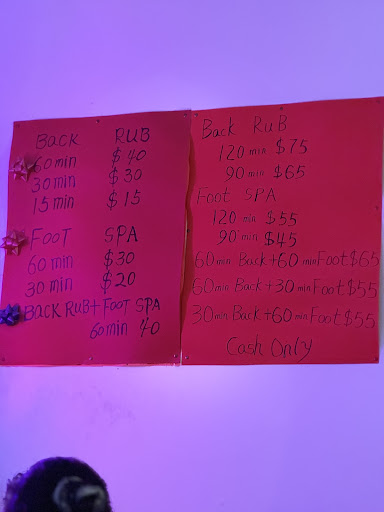 Back RUB
60 min $40
30 min $30
15 min $15
FOOT SPA
60 min $30
30 min $20
BACK RUB + FOOT SPA
60 min 40
Back RuB
120 min $75
90 min $65
Foot SPA
120 min $55
90 min $45
60 min Back + 60 min Foot $65
60 min Back + 30 min Foot $55
30 min Back + 60 min Foot $55
Cash Only